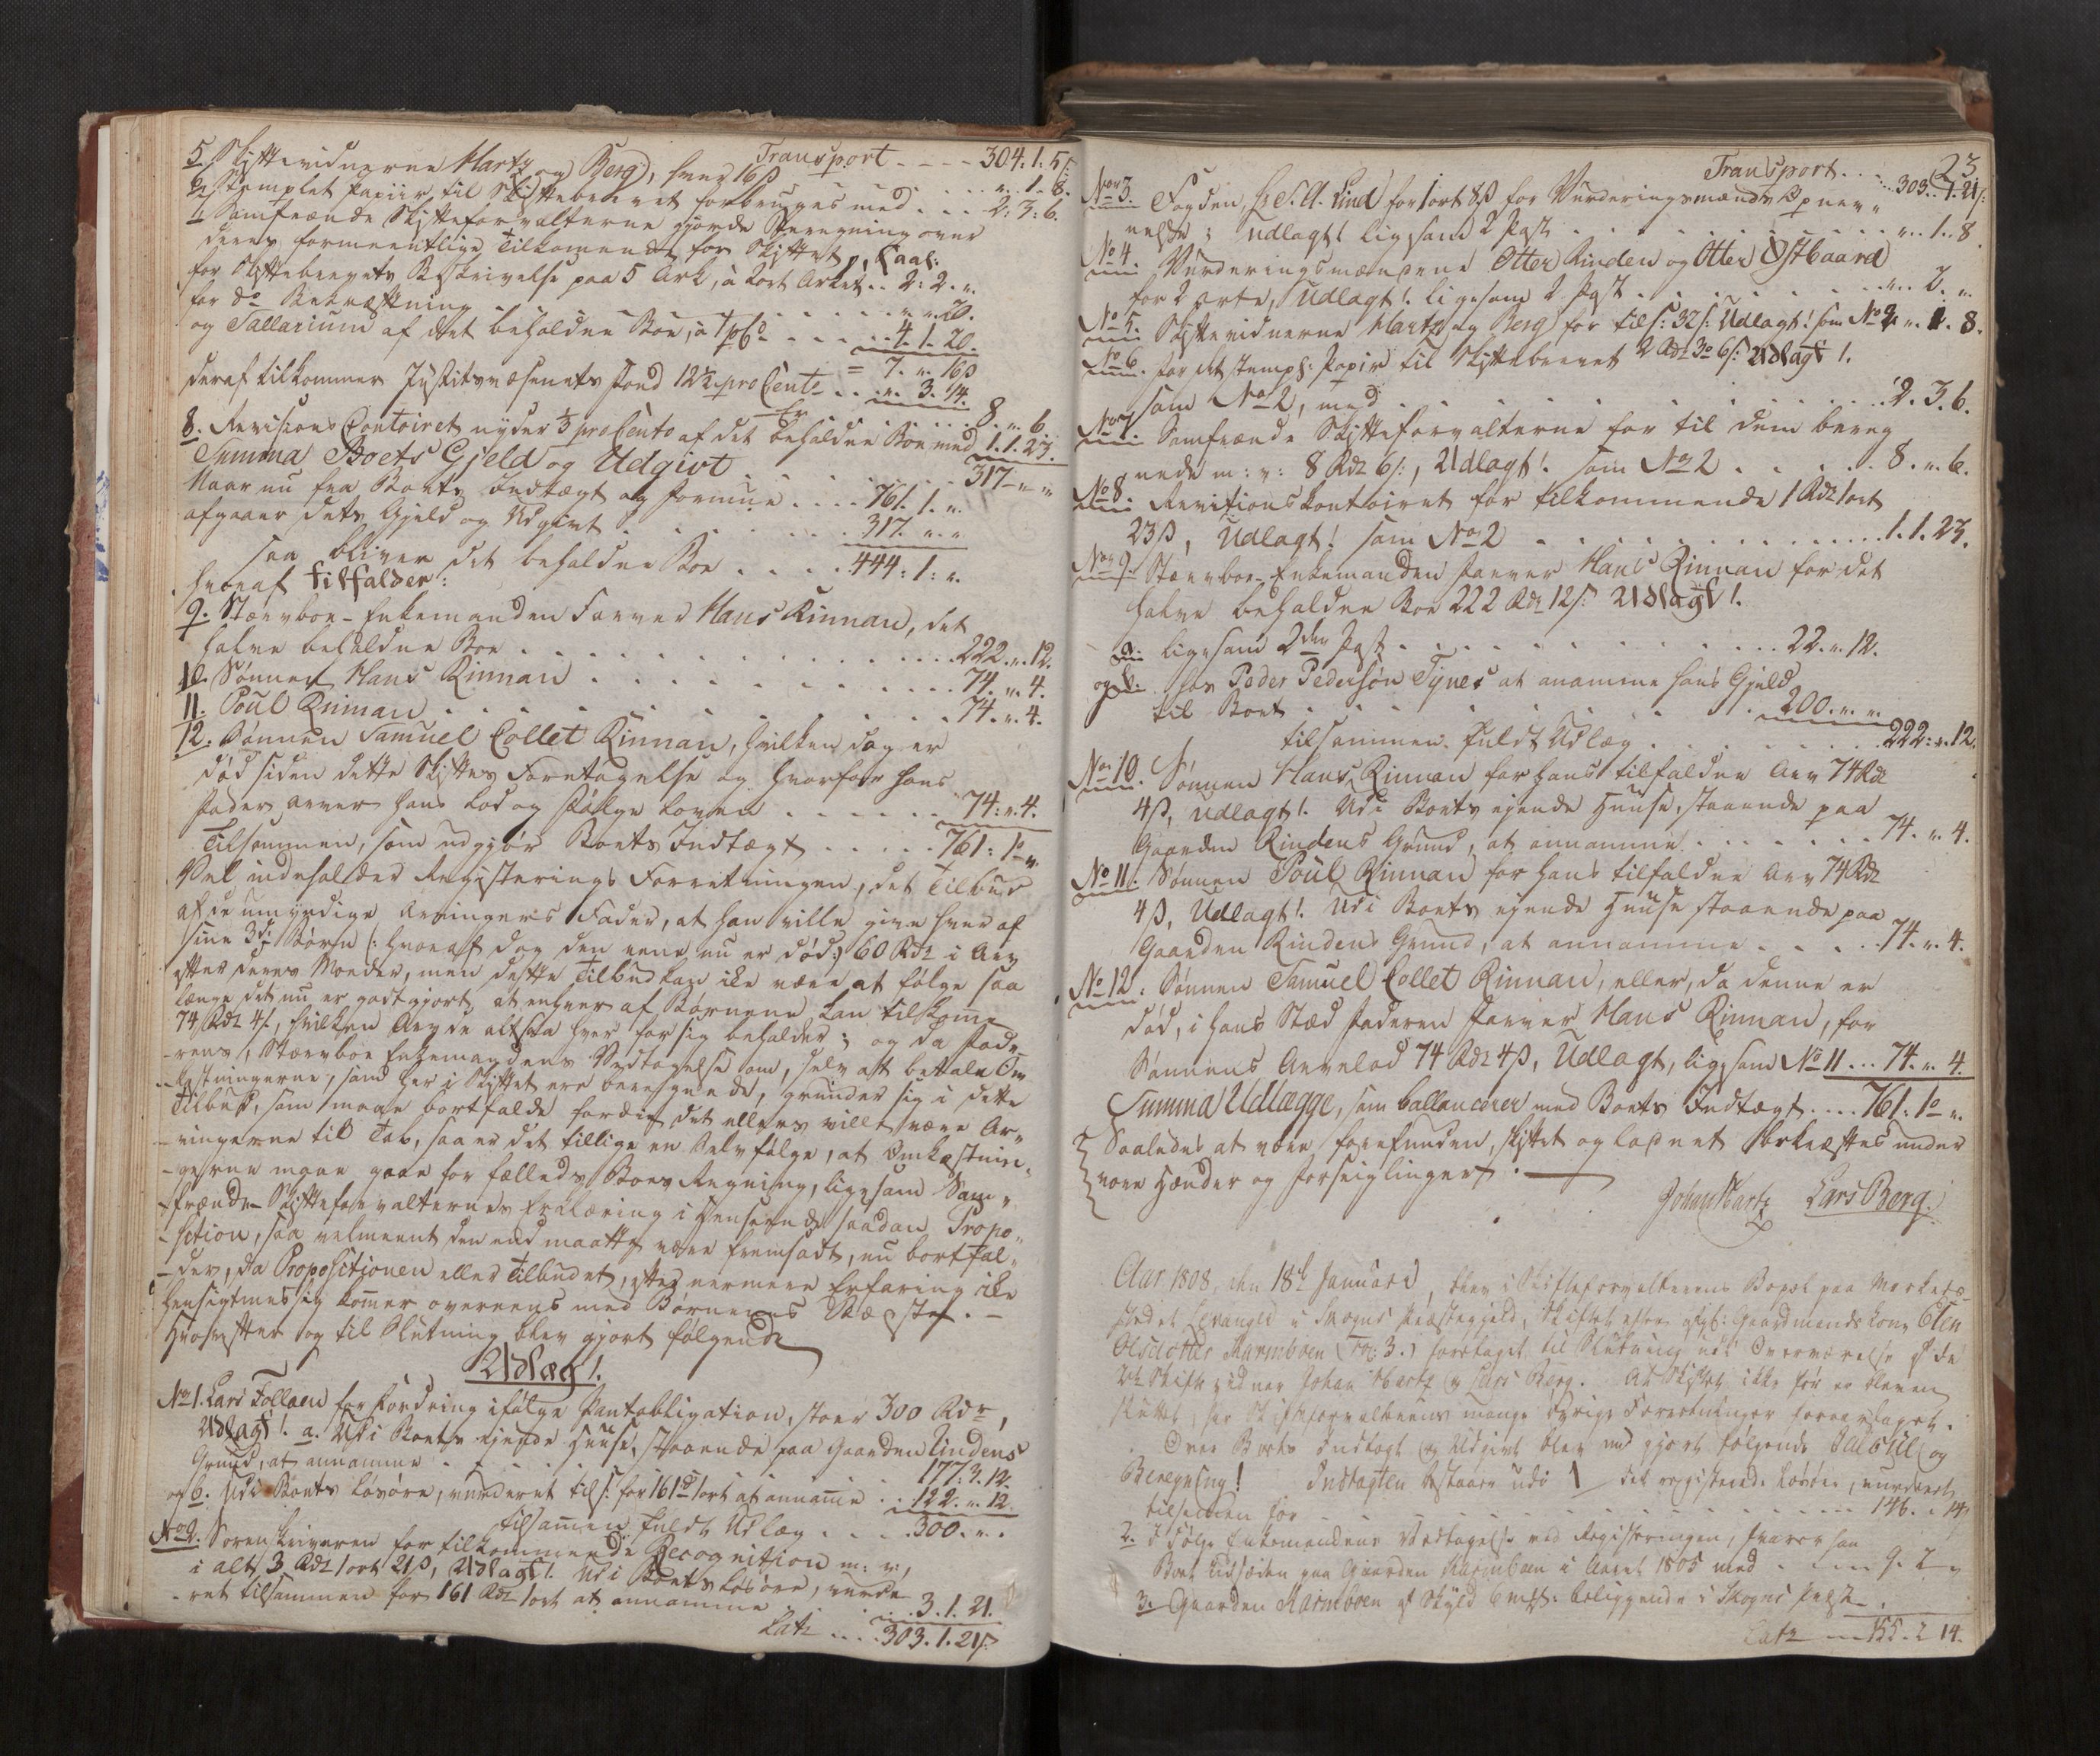 Transport - - - - 304. 1. 5ß:
5. Skiftevidnerne Hartz og Berg, hver 16 ß . . . . „. 1. 8.
6. Stemplet Papiir til Skiftebrevet forbruges med . . . 2: 3: 6.
7. Samfrænde Skifteforvalterne gjorde Beregning over
deres formeentlige Tilkomende for Skiftet, saal:
for Skiftebrevets Beskrivelse paa 5 Ark, à 2 ort Arket . . 2: 2. „.
for do Bekræftning . . . . . . „. „. 20.
og Sallarium af det beholdne Boe, à 1 pCt . . . . 4. 1. 20.
= 7. „. 16 ß
deraf tilkommer Justitsvæsenets Fond 12½ pro Cento . . „. 3. 14.
Er . . . . . 8. „. 6.
8. Revisions Contoiret nyder ⅓ pro Cento af det beholdne Boe med 1. 1. 23.
Summa Boets Gjeld og Udgivt . . . . . 317 „ „
Naar nu fra Boets Indtægt og Formue . . . . 761. 1. „.
afgaaer dets Gjeld og Udgivt . . . . . . . 317. „. „
saa bliver det beholdne Boe . . . . . 444: 1: „.
hvoraf tilfalder:
9. Stervboe-Enkemanden Farver Hans Rinnan, det
halve beholdne Boe . . . . . . . . . . 222. „. 12.
10. Sønnen Hans Rinnan . . . . . . . . . 74. „. 4.
11. Poul Rinnan . . . . . . . . . . . . 74. „. 4.
12. Sønnen Samuel Collet Rinnan, hvilken dog er
død siden dette Skiftes Foretagelse og hvorfor hans
Fader arver hans Lod og følge Loven . . . . . . 74: „. 4.
Tilsammen, som udgjør Boets Indtægt . . . . 761: 1 o „.
Vel indeholder Registerings Forretningen, det Tilbud
af de umyndige Arvingers Fader, at han ville give hver af
sine 3de Børn /: hvoraf dog den eene nu er død :/ 60 Rdr i Arv
efter deres Moeder, men dette Tilbud kan ikke være at følge saa
længe det nu er godtgjort, at enhver af Børnene kan tilkome
74 Rdr 4 ß, hvilken Arv de altsaa hver for sig beholder; og da Fade-
rens, Stervboe Enkemandens Vedtagelse om, selv at betale Om-
kostningerne, som her i Skiftet ere beregnede, grunder sig i dette
Tilbud, som maae bortfalde fordi det ellers ville være Ar„
-vingerne til Tab, saa er det tillige en Selvfølge, at Omkostnin-
-gerne maae gaae for fælleds Boes Regning, ligesom Sam„
-frænde-Skifteforvalternes Erklæring i Henseende saadan Propo„
-sition, saa velmeent den end maatte være fremsadt, nu bortfal„
-der, da Propositionen eller Tilbudet, efter nermere Erfaring ikke
hensigtmessig komer overeens med Børnenes Bæste. –
Hvorefter og til Slutning blev gjort følgende
Udlæg!
No 1. Lars Follaen for Fordring ifølge Pantobligation, stoer 300 Rdr,
Udlagt! a. Udi Boets ejende Huuse, staaende paa Gaarden Rindens
Grund, at annamme . . . . . . 177: 3. 12.
og b. Udi Boets Løsøre, vurderet tils: for 161 Rd 1 ort at anname . . 122. „. 12.
tilsamen fuldt Udlæg . . . . . 300. „. „.
No 2. Sorenskriveren for tilkommende Recognition m: v:,
i alt 3 Rdr 1 ort 21 ß, Udlagt! Udi Boets Løsøre, vurde
-ret tilsammen for 161 Rdr 1 ort at annamme . . . 3. 1. 21.
Latr . . . . 303. 1. 21 ß.
23
Transport . . . . . . 303. 1. 21 ß:
No 3. Fogden, Hr S. A. Lind for 1 ort 8 ß for Vurderingsmænds Opnev„
nelse; udlagt! ligesom 2 Post . . . . . . . . . . „. 1. 8.
No 4. Vurderingsmændene Otter Rinden og Otter Østbaard
for 2 orte, Udlagt! ligesom 2 Post . . . . . . . . „. 2. „.
No 5. Skiftevidnerne Hartz og Berg for tils: 32 ß: Udlagt! som No 2 „. 1. 8.
No 6. For det stempl: Papir til Skiftebrevet 2 Rdr 3 o 6 ß: Udlagt!
som No 2, med . . . . . . . . . . . . . . . . 2. 3. 6.
No 7. Samfrænde Skifteforvalterne for til dem bereg
nede m: v: 8 Rdr 6 ß:, Udlagt! som No 2 . . . . . . 8. „. 6.
No 8. Revisionskontoiret for tilkommende 1 Rdr 1 ort
23 ß, Udlagt! som No 2 . . . . . . . . . . . . . 1. 1. 23.
No 9. Stervboe-Enkemanden Farver Hans Rinnan for det
halve beholdne Boe 222 Rdr 12 ß: Udlagt!.
a. ligesom 2den Post . . . . . . . . . . . 22. „. 12.
og b. Hos Peder Pedersøn Tynes at anamme hans Gjeld
til Boet . . . . . . . . . . . . 200. „. „.
tilsammen fuldt Udlæg . . . . . . . . 222: „. 12.
No 10. Sønnen Hans Rinnan for hans tilfaldne Arv 74 Rdr
4 ß, Udlagt!. Udi Boets ejende Huuse, staaende paa
Gaarden Rindens Grund, at annamme . . . . . . . 74. „. 4.
No 11. Sønnen Poul Rinnan for hans tilfaldne Arv 74 Rdr
4 ß, Udlagt!. Udi Boets ejende Huuse staaende paa
Gaarden Rindens Grund, at annamme . . . . . 74. „. 4.
No 12. Sønnen Samuel Collet Rinnan, eller, da denne er
død, i hans Stæd Faderen Farver Hans Rinnan, for
Sønnens Arvelod 74 Rdr 4 ß, Udlagt, ligesom No 11 . . . 74. „. 4.
Summa Udlægge, som ballancerer med Boets Indtægt . . . . 761. 1 o „.
Saaledes at være forefunden, skiftet og loddet bekræftes under
vore Hænder og Forseiglinger.
Johan Hartz Lars Berg.
Aar 1808, den 18de Januari, blev i Skifteforvalterens Bopæl paa Markeds-
stedet Levanger i Skogns Præstegjeld, Skiftet efter afgl: Gaardmands Kone Elen
Olsdotter Karmboen (Fol: 3.) foretaget til Slutning udi Overværelse af de
2de Skiftevidner Johan Hartz og Lars Berg. At Skiftet ikke før er bleven
sluttet, har Skifteforvalterens mange øvrige Forretninger foraarsaget.
Over Boets Indtægt og Udgivt blev nu gjort følgende Udlæg og
Beregning! Indtægten bestaaer udi 1 det registerede Løsøre, vurderet
tilsammen for . . . . . . . . . . . . . 146. „ 14.
2. I følge Enkemandens Vedtagelse ved Registeringen, svarer han
Boet Udsæden paa Gaarden Karmboen i Aaret 1805 med . . . . 9. 2 „
3. Gaarden Karmboen af Skyld 6 mkl: beliggende i Skogns Præste-.
Latr . . . . 155. 2 14.